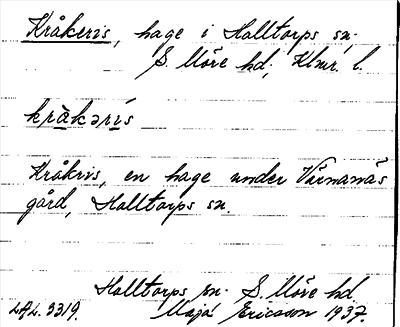 Kråkeris, hage i Halltorps sn.
S. Möre hd, Klmr. l.
kràkərís
Kråkris, en hage under Värnanäs
gård, Halltorps sn.
Halltorps sn. S. Möre hd.
LAL. 3319. Maja Ericsson 1937.